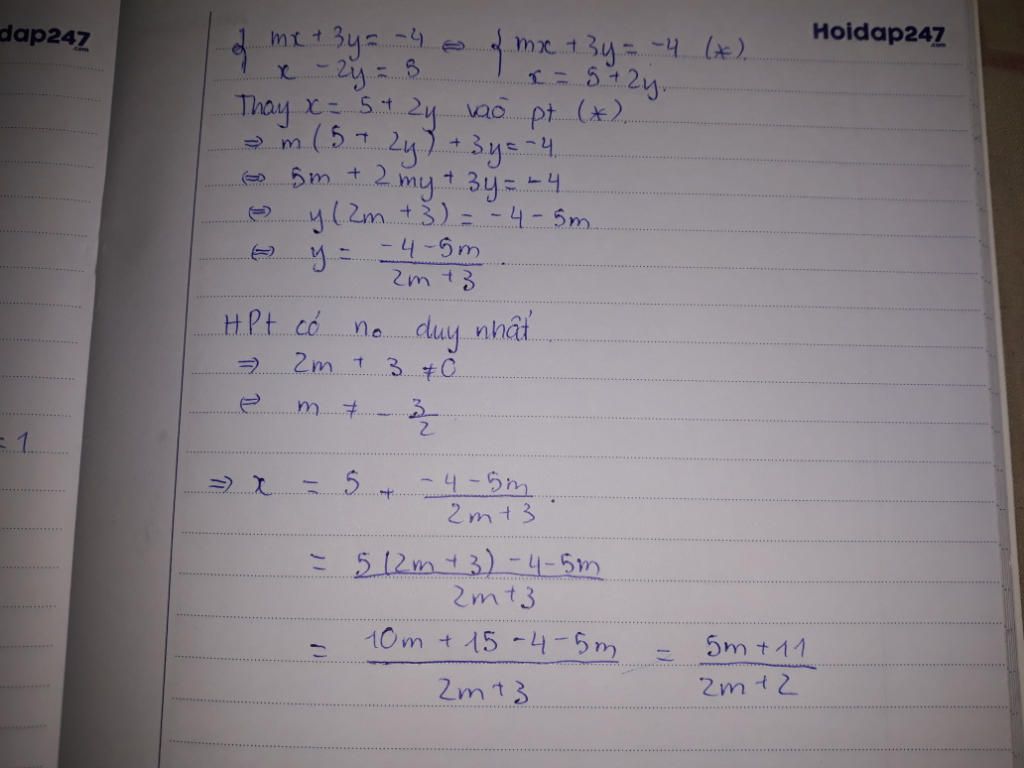 dap247
.com
Hoidap247
.com
{ mx + 3y = -4 ⇔ { mx + 3y = -4 (*).
x - 2y = 5 x = 5 + 2y.
Thay x = 5 + 2y vào pt (*).
⇒ m(5 + 2y) + 3y = -4
⇔ 5m + 2my + 3y = -4
⇔ y(2m + 3) = -4 - 5m
⇔ y = (-4 - 5m)/(2m + 3).
HPt có no duy nhất
⇒ 2m + 3 ≠ 0
⇔ m ≠ -3/2
⇒ x = 5 + (-4 - 5m)/(2m + 3).
= (5(2m + 3) - 4 - 5m)/(2m + 3)
= (10m + 15 - 4 - 5m)/(2m + 3) = (5m + 11)/(2m + 2)
= 1